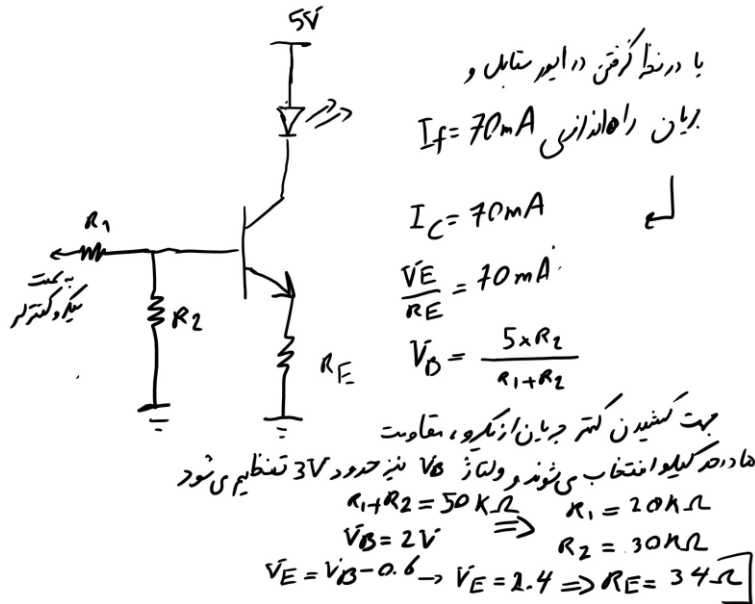 5V
با در نظر گرفتن درایور ستابل و
جریان راه اندازی If = 70mA
IC = 70mA
VE/RE = 70mA
VB = 5×R2/R1+R2
R1
به سمت
میکروکنترلر
R2
RE
جهت کشیدن کمتر جریان از میکرو، مقاومت
ها در حد کیلو انتخاب می شوند و ولتاژ VB نیز حدود 3V تنظیم می شود
R1+R2 = 50KΩ ⇒ R1 = 20KΩ
VB = 2V R2 = 30KΩ
VE = VB-0.6 → VE = 2.4 ⇒ RE = 34Ω